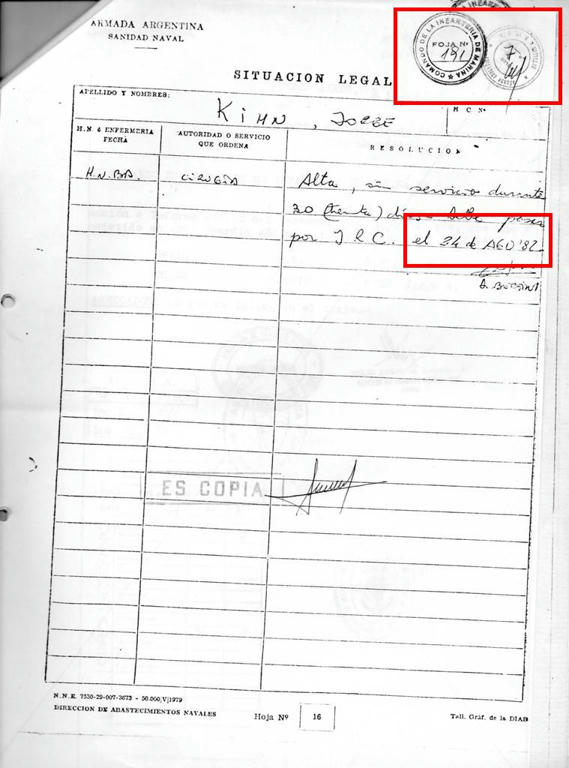 ARMADA ARGENTINA
SANIDAD NAVAL
COMANDO DE LA INFANTERIA DE MARINA
FOJA Nº
191
SITUACION LEGAL
APELLIDO Y NOMBRES:
KIHN, JORGE
H C Nº
H.N. ó ENFERMERIA
FECHA
AUTORIDAD O SERVICIO
QUE ORDENA
RESOLUCION
H.N.B.B.
CIRUGIA
Alta, sin servicio durante
30 (treinta) días debe pasar
por J R C. el 24 de AGO '82
ES COPIA
N.N.E. 7530-29-007-3673 - 50.000,V|1979
DIRECCION DE ABASTECIMIENTOS NAVALES
Hoja Nº 16
Tall. Gráf. de la DIAB